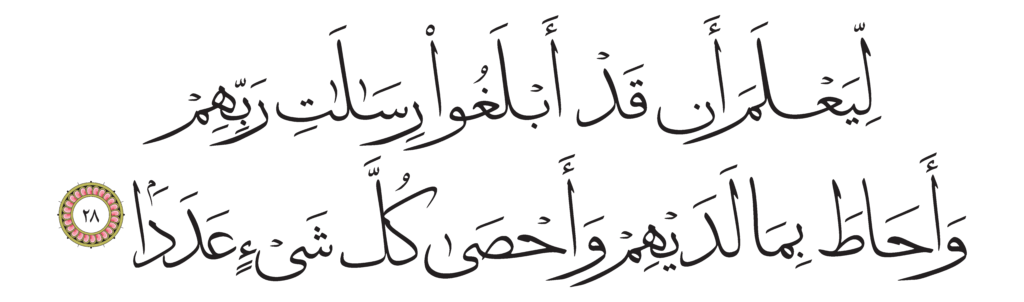 لِّيَعْلَمَ أَن قَدْ أَبْلَغُوا۟ رِسَـٰلَـٰتِ رَبِّهِمْ
وَأَحَاطَ بِمَا لَدَيْهِمْ وَأَحْصَىٰ كُلَّ شَىْءٍ عَدَدَۢا ٢٨